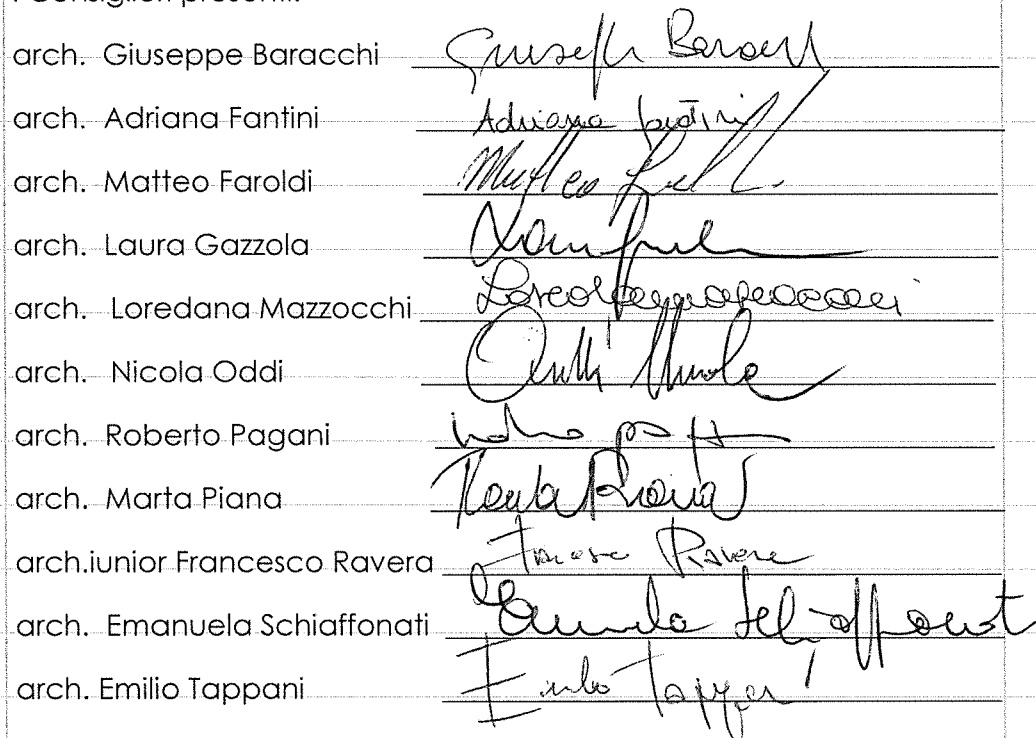 I Consiglieri presenti:
arch. Giuseppe Baracchi Giuseppe Baracchi
arch. Adriana Fantini Adriana Fantini
arch. Matteo Faroldi Matteo
arch. Laura Gazzola Laura
arch. Loredana Mazzocchi Loredana Mazzocchi
arch. Nicola Oddi Oddi Nicola
arch. Roberto Pagani
arch. Marta Piana Marta Piana
arch.iunior Francesco Ravera Francesco Ravera
arch. Emanuela Schiaffonati Emanuela Schiaffonati
arch. Emilio Tappani Emilio Tappani